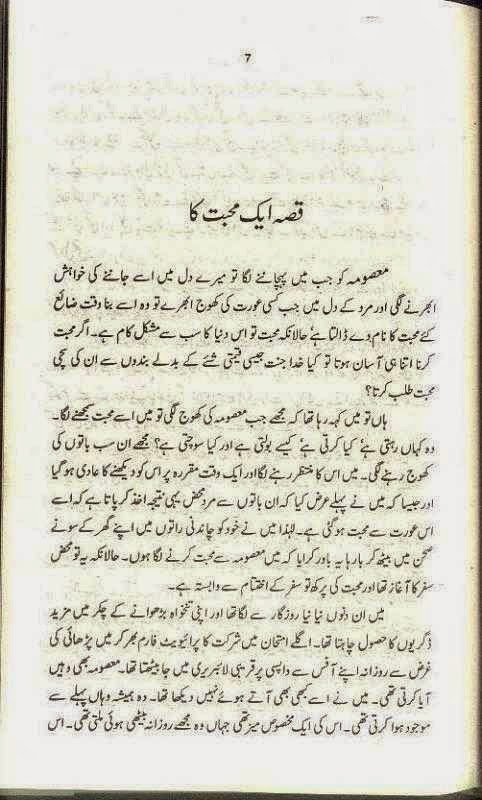 7
قصہ ایک محبت کا
معصومہ کو جب میں پہچاننے لگا تو میرے دل میں اسے جاننے کی خواہش
ابھرنے لگی اور مرد کے دل میں جب کسی عورت کی کھوج ابھرے تو وہ اسے بنا وقت ضائع
کئے محبت کا نام دے ڈالتا ہے' حالانکہ محبت تو اس دنیا کا سب سے مشکل کام ہے۔ اگر محبت
کرنا اتنا ہی آسان ہوتا تو کیا خدا جنت جیسی قیمتی شئے کے بدلے بندوں سے ان کی سچی
محبت طلب کرتا؟
ہاں تو میں کہہ رہا تھا کہ مجھے جب معصومہ کی کھوج لگی تو میں اسے محبت سمجھنے لگا۔
وہ کہاں رہتی ہے' کیا کرتی ہے' کیسے بولتی ہے اور کیا سوچتی ہے؟ مجھے ان سب باتوں کی
کھوج رہنے لگی۔ میں اس کا منتظر رہنے لگا اور ایک وقت مقررہ پر اس کو دیکھنے کا عادی ہو گیا
اور جیسا کہ میں نے پہلے عرض کیا کہ ان باتوں سے مرد محض یہی نتیجہ اخذ کر پاتا ہے کہ اسے
اس عورت سے محبت ہو گئی ہے۔ لہٰذا میں نے خود کو چاندنی راتوں میں اپنے گھر کے سونے
صحن میں بیٹھ کر بارہا یہ باور کرایا کہ میں معصومہ سے محبت کرنے لگا ہوں۔ حالانکہ یہ تو محض
سفر کا آغاز تھا اور محبت کی پرکھ تو سفر کے اختتام سے وابستہ ہے۔
میں ان دنوں نیا نیا روزگار سے لگا تھا اور اپنی تنخواہ بڑھوانے کے چکر میں مزید
ڈگریوں کا حصول چاہتا تھا۔ اگلے امتحان میں شرکت کا پرائیویٹ فارم بھر کر میں پڑھائی کی
غرض سے روزانہ اپنے آفس سے واپسی پر قریبی لائبریری میں جا بیٹھتا تھا۔ معصومہ بھی وہیں
آیا کرتی تھی۔ میں نے اسے کبھی بھی آتے ہوئے نہیں دیکھا تھا۔ وہ ہمیشہ وہاں پہلے سے
موجود ہوا کرتی تھی۔ اس کی ایک مخصوص میز تھی جہاں وہ مجھے روزانہ بیٹھی ہوئی ملتی تھی۔ اس